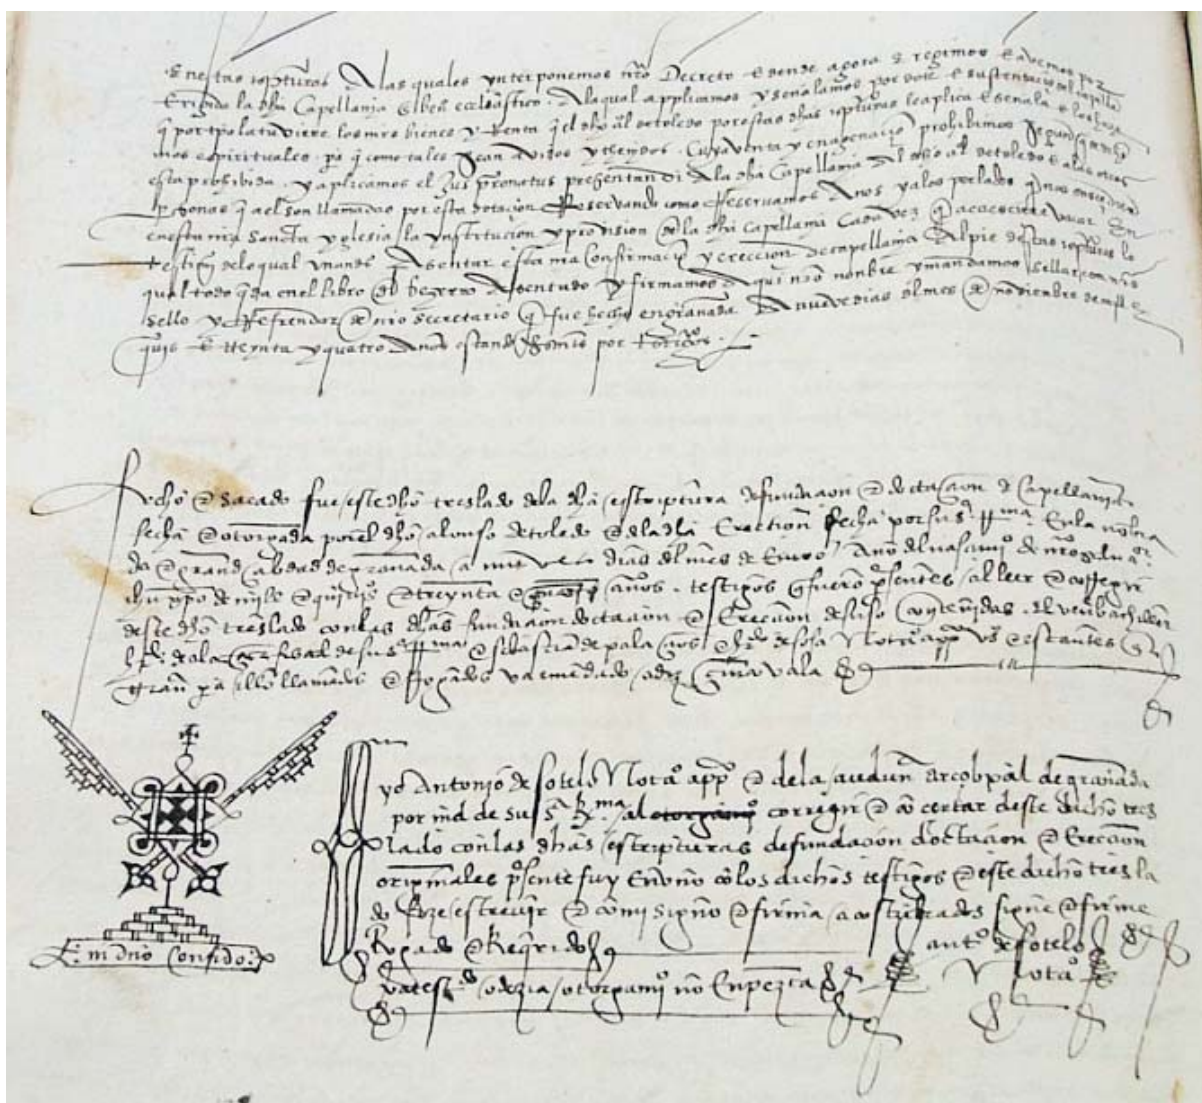 escripturas A las quales ynterponemos nro Decreto E dende agora erigimos E avemos por
Erigida la dha Capellania E bes eclesiastico. A la qual applicamos y señalamos por dote E sustentacion del capellan
q por tpo la tuviere los mrs bienes y Renta q el dho al de toledo por estas dhas scripturas le aplica E señala E los haze
mos espirituales. pa q como tales sean avidos y thenidos. Cuya venta y enagenacio prohibimos segund q en dro
esta prohivida. y aplicamos el Jus patronatus presentandi A la dha Capellania Al dho al de toledo E a las otras
psonas q a el son llamadas por esta dotacion Reservando como Reservamos A nos y a los perlados q nos
en esta nra sancta yglesia la ynstitucion y provision de la dha capellania Cada vez q acaesciere vacar En
testimo de lo qual mandamos Asentar esta nra Confirmacio y ereccion de capellania Al pie destas scripturas lo
qual todo qda en el libro del bezerro Asentado y firmamos aqui nro nonbre y mandamos sellar con nro
sello y Refrendar de nro secretario q fue hecho en granada A nueve dias del mes de noviembre de mill E
quis E treynta y quatro Años
fecho E sacado fue este dho treslado de la dha escriptura de fundacion E doctacion de Capellania
fecha E otorgada por el dho alonso de toledo E de la dha Erection fecha por su sª Rma. En la nonbra
da E grand cibdad de granada, a nueve dias del mes de Enero Año del nascimio de nro Salvador
ihu xpo de mile E quiºs E treynta E años. testigos q fuero psentes al leer E corregir
deste dho treslado con las dhas fundacion doctacion E Ereccion de suso contenidas. el venbachiller
de su sª Rma E sebastian de palacios E de sosa Notºs appºs vºs E estantes En
granª pa ello llamados E Rogados va emendado
E yo Antonio de sotelo Notaº appº E de la audienª arçobpal de granada
por mdº de su sª Rma. al otorgamiº corregir E concertar deste dicho tres
lado con las dhas escripturas de fundacion doctacion E Ereccion
originales psente fuy En uno con los dichos testigos E este dicho tresla
do fize escrevir E con mi signo E firma acostunbrados signe E firme
Rogado E Reqrido
antº de sotelo
Notaº
va test.dº o dezia otorgamiº no Enpezca
E: in dnio Confido: